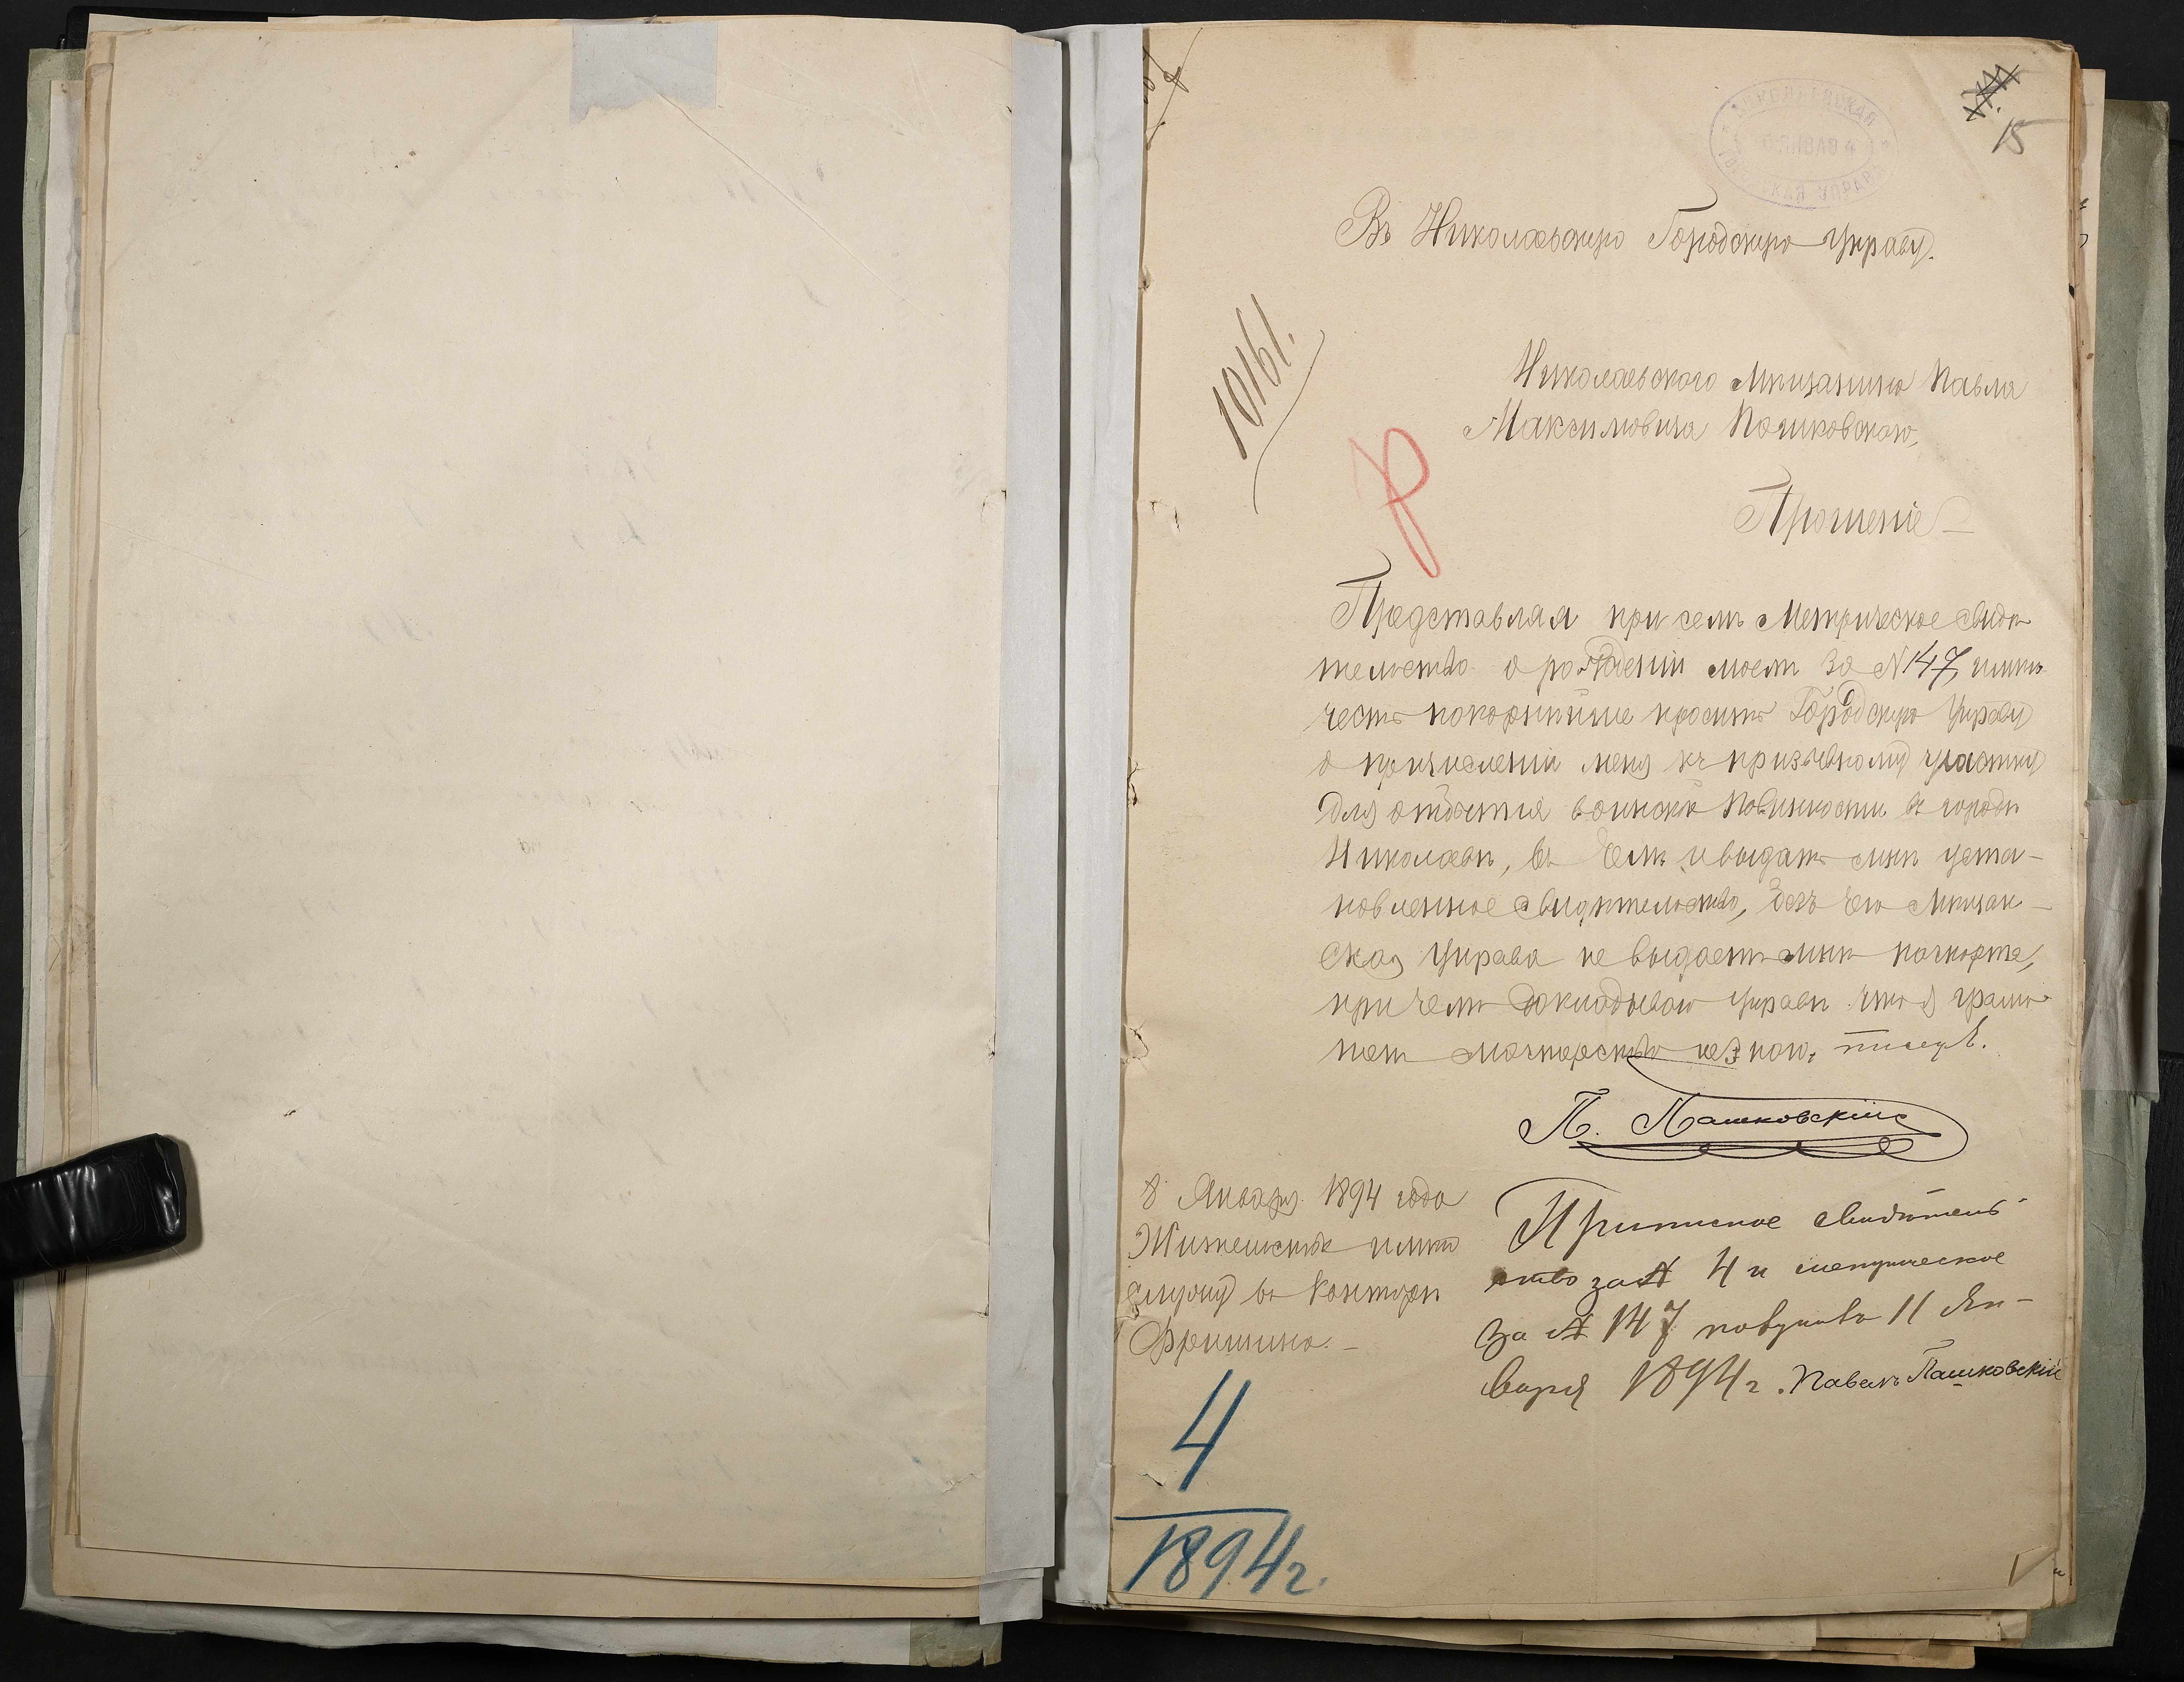 15
НИКОЛАЕВСКАЯ
ГОРОДСКАЯ УПРАВА
Въ Николаевскую Городскую Управу.
10161.
Николаевского Мѣщанина Павла
Максимовича Пашковскаго,
Прошеніе
Представляя при семъ Метрическое свидѣ
тельство о рожденіи моемъ за N 147, имѣю
честь покорнѣйше просить Городскую Управу
о причисленіи меня къ призывному участку
для отбытія воинской повинности въ городѣ
Николаевѣ, въ чемъ и выдать мнѣ уста-
новленное свидѣтельство, безъ его Мѣщан-
ская Управа не выдаетъ мнѣ паспорта,
при чемъ докладываю Управѣ что я грамо
тен мастерства не знаю, писецъ.
П. Пашковскій
8 Января 1894 года
Жительство имѣю
служу въ Конторѣ
Фришина.
Приписное свидѣтель-
ство за № 4 и метрическое
за № 147 получилъ 11 Ян-
варя 1894 г. Павелъ Пашковскій
4
1894 г.